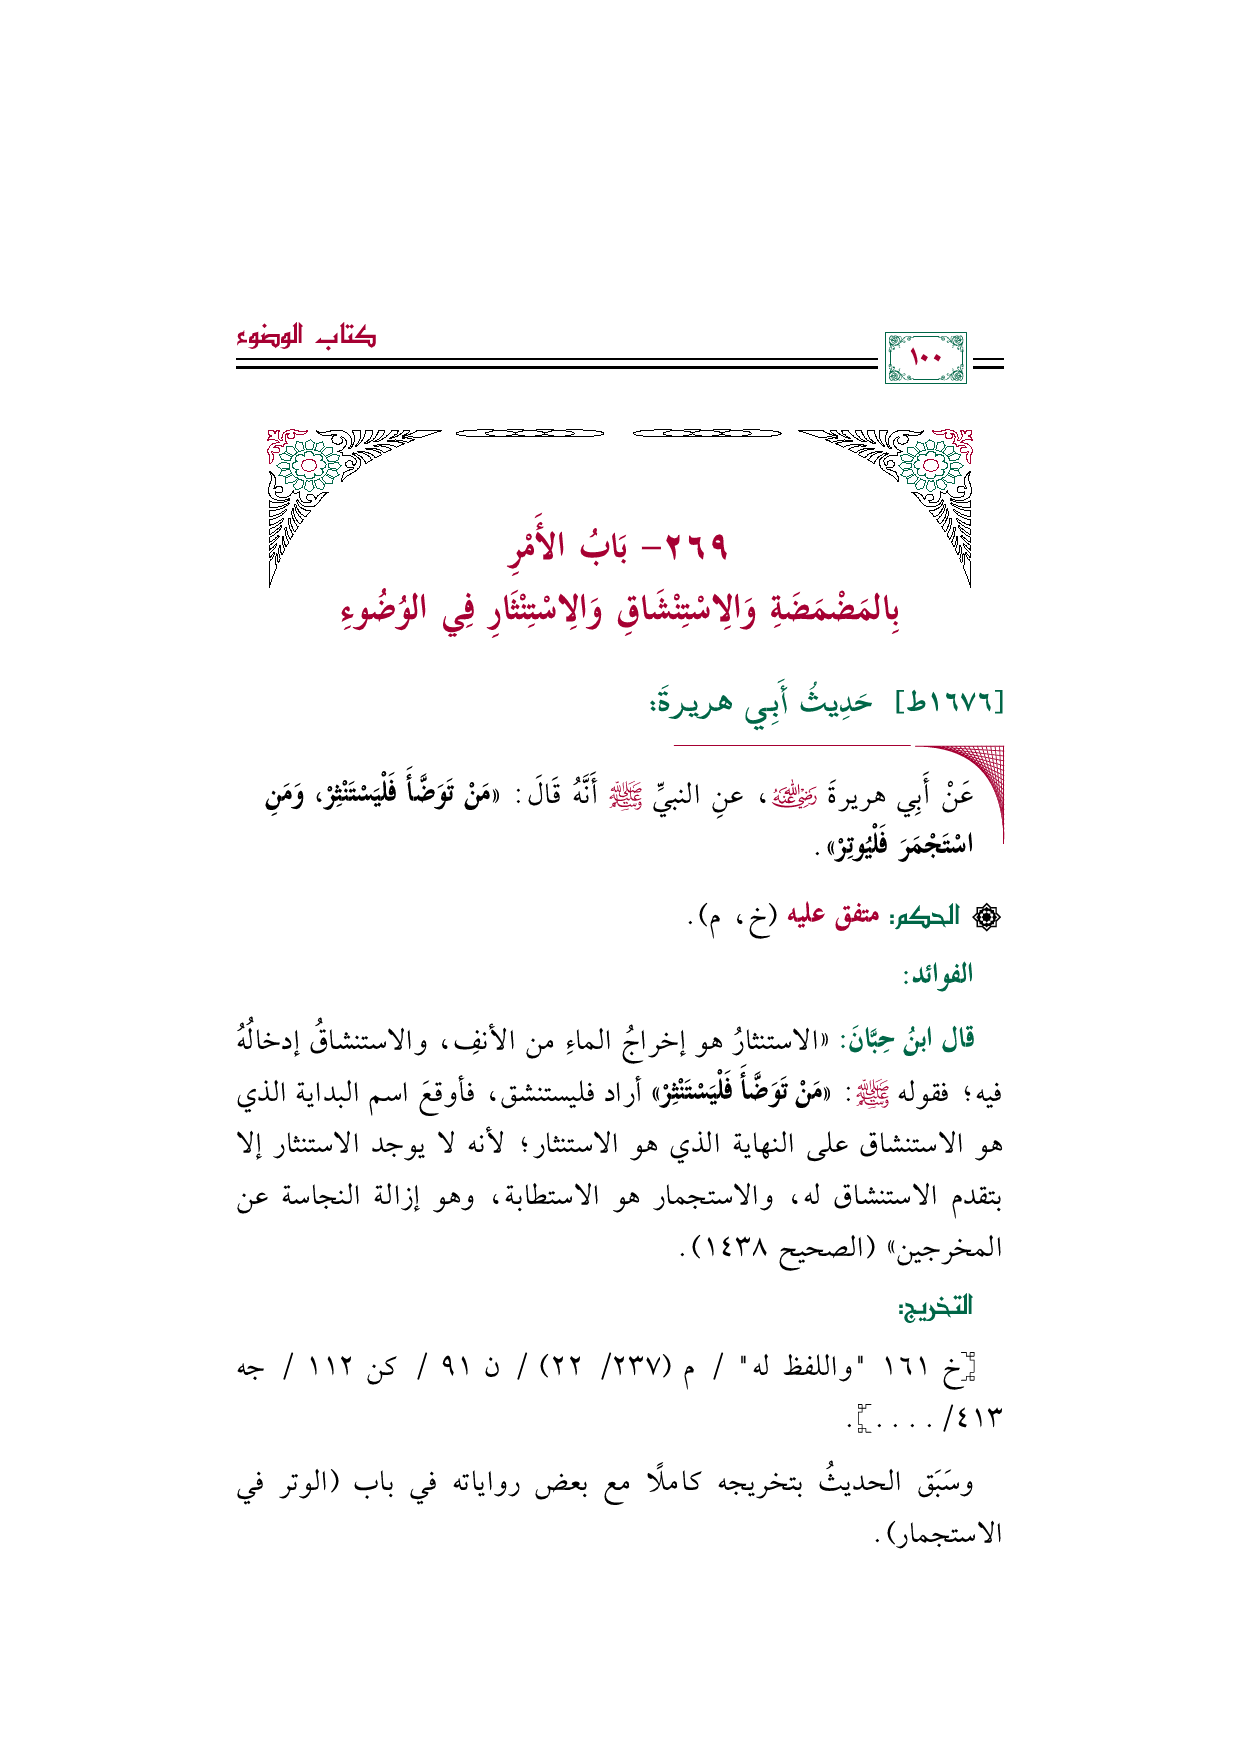 كتاب الوضوء
١٠٠
٢٦٩- بَابُ الأَمْرِ
بِالمَضْمَضَةِ وَالِاسْتِنْشَاقِ وَالِاسْتِنْثَارِ فِي الوُضُوءِ
[١٦٧٦ط] حَدِيثُ أَبِي هريرةَ:
عَنْ أَبِي هريرةَ رضي الله عنه، عنِ النبيِّ ﷺ أَنَّهُ قَالَ: «مَنْ تَوَضَّأَ فَلْيَسْتَنْثِرْ، وَمَنِ
اسْتَجْمَرَ فَلْيُوتِرْ».
الحكم: متفق عليه (خ، م).
الفوائد:
قال ابنُ حِبَّانَ: «الاستنثارُ هو إخراجُ الماءِ من الأنفِ، والاستنشاقُ إدخالُهُ
فيه؛ فقوله ﷺ: «مَنْ تَوَضَّأَ فَلْيَسْتَنْثِرْ» أراد فليستنشق، فأوقعَ اسم البداية الذي
هو الاستنشاق على النهاية الذي هو الاستنثار؛ لأنه لا يوجد الاستنثار إلا
بتقدم الاستنشاق له، والاستجمار هو الاستطابة، وهو إزالة النجاسة عن
المخرجين» (الصحيح ١٤٣٨).
التخريج:
[خ ١٦١ "واللفظ له" / م (٢٣٧/ ٢٢) / ن ٩١ / كن ١١٢ / جه
٤١٣/ ....].
وسَبَق الحديثُ بتخريجه كاملًا مع بعض رواياته في باب (الوتر في
الاستجمار).